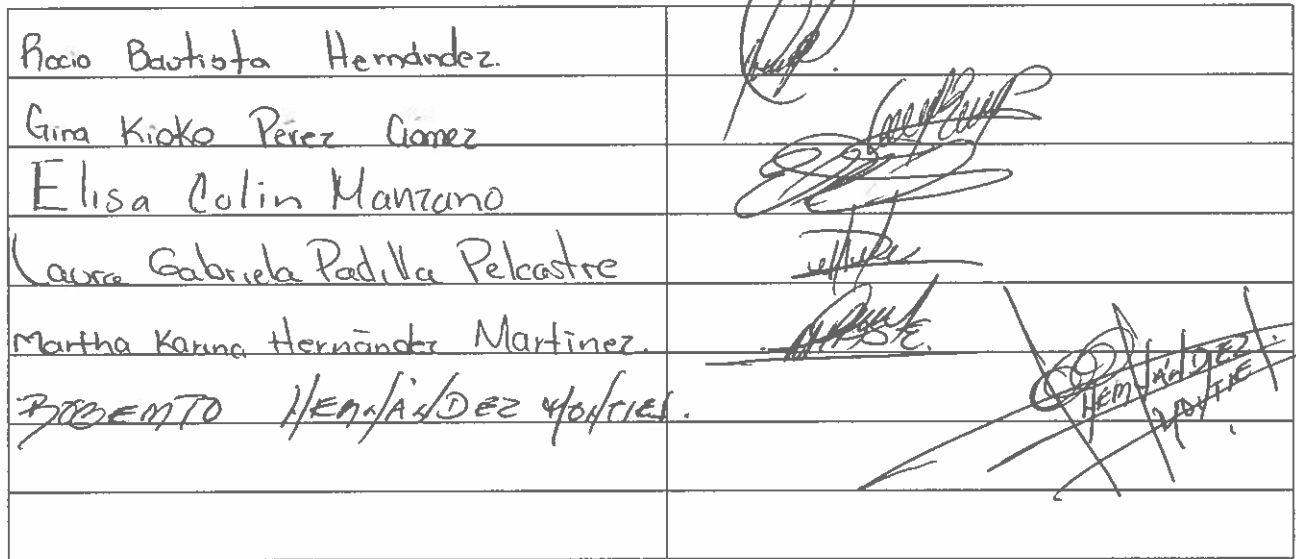 Rocio Bautista Hernández.
Gina Kioko Pérez Gomez
Elisa Colin Manzano
Laura Gabriela Padilla Pelcastre
Martha Karina Hernández Martinez.
ROBERTO HERNÁNDEZ MONTIEL.
HERNÁNDEZ
MONTIE